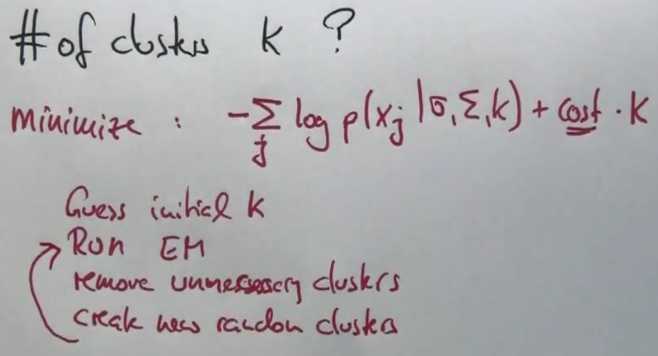 # of clusters k ?
minimize : -Σ_j log p(x_j | σ, Σ, k) + cost · k
Guess initial k
Run EM
remove unnecessary clusters
create new random clusters